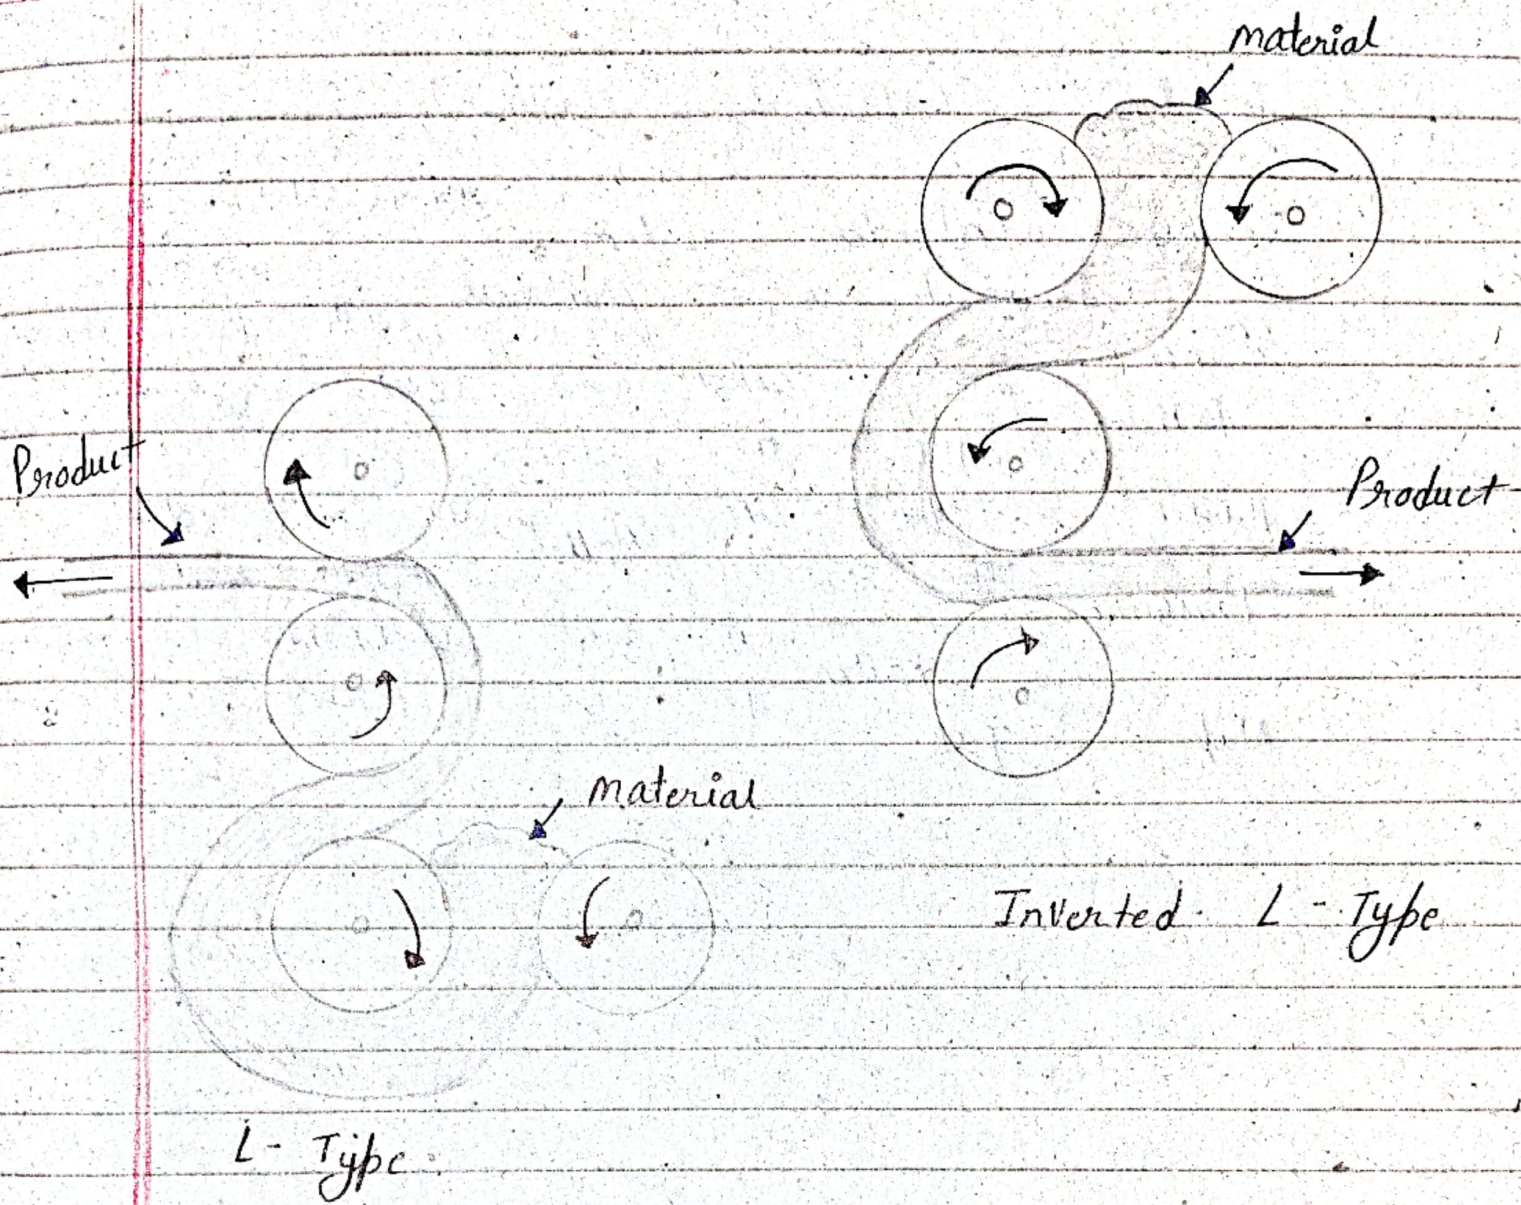 material
Product
Product
material
Inverted L - Type
L - Type